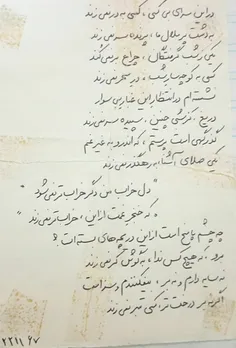 در این سرای بی کسی، کسی به در نمی زند
به دشت پر ملال ما، پرنده پر نمی زند
یکی ز شب گرفتگان، چراغ بر نمی کند
کسی به کوچه سار شب، در سحر نمی زند
نشسته ام در انتظار این غبار بی سوار
دریغ کز شبی چنین، سپیده سر نمی زند
گذرگهی است پر ستم، که اندر او به غیر غم
یکی صلای آشنا به رهگذر نمی زند
" دل خراب من دگر خراب تر نمی شود
که خنجر غمت از این، خراب تر نمی زند "
چه چشم پاسخ است از این دریچه های بسته ات؟
برو که هیچ کس ندا، به گوش کر نمی زند
نه سایه دارم و نه بر، بیفکنندم و سزاست
اگر نه بر درخت تر، کسی تبر نمی زند
۶۷